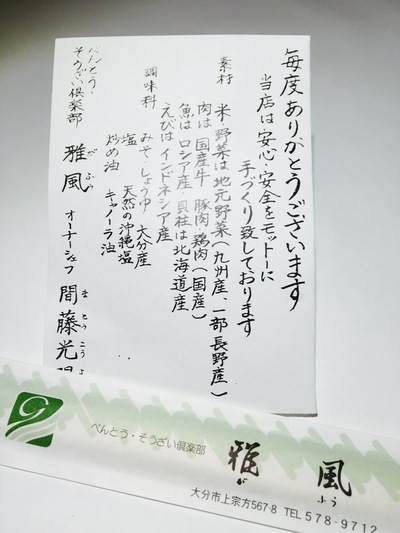 毎度ありがとうございます
当店は安心・安全をモットーに
手づくり致しております
素材
米・野菜は地元野菜(九州産、一部長野産)
肉は国産牛 豚肉 鶏肉(国産)
魚はロシア産 貝柱は北海道産
えびはインドネシア産
調味料
みそ・しょうゆ 大分産
塩 天然の沖縄塩
炒め油 キャノーラ油
べんとう・
そうざい倶楽部
雅風 オーナーシェフ 間藤光
がふう まとうこうよ
べんとう・そうざい倶楽部
雅風
がふう
大分市上宗方567-8 TEL 578-9712